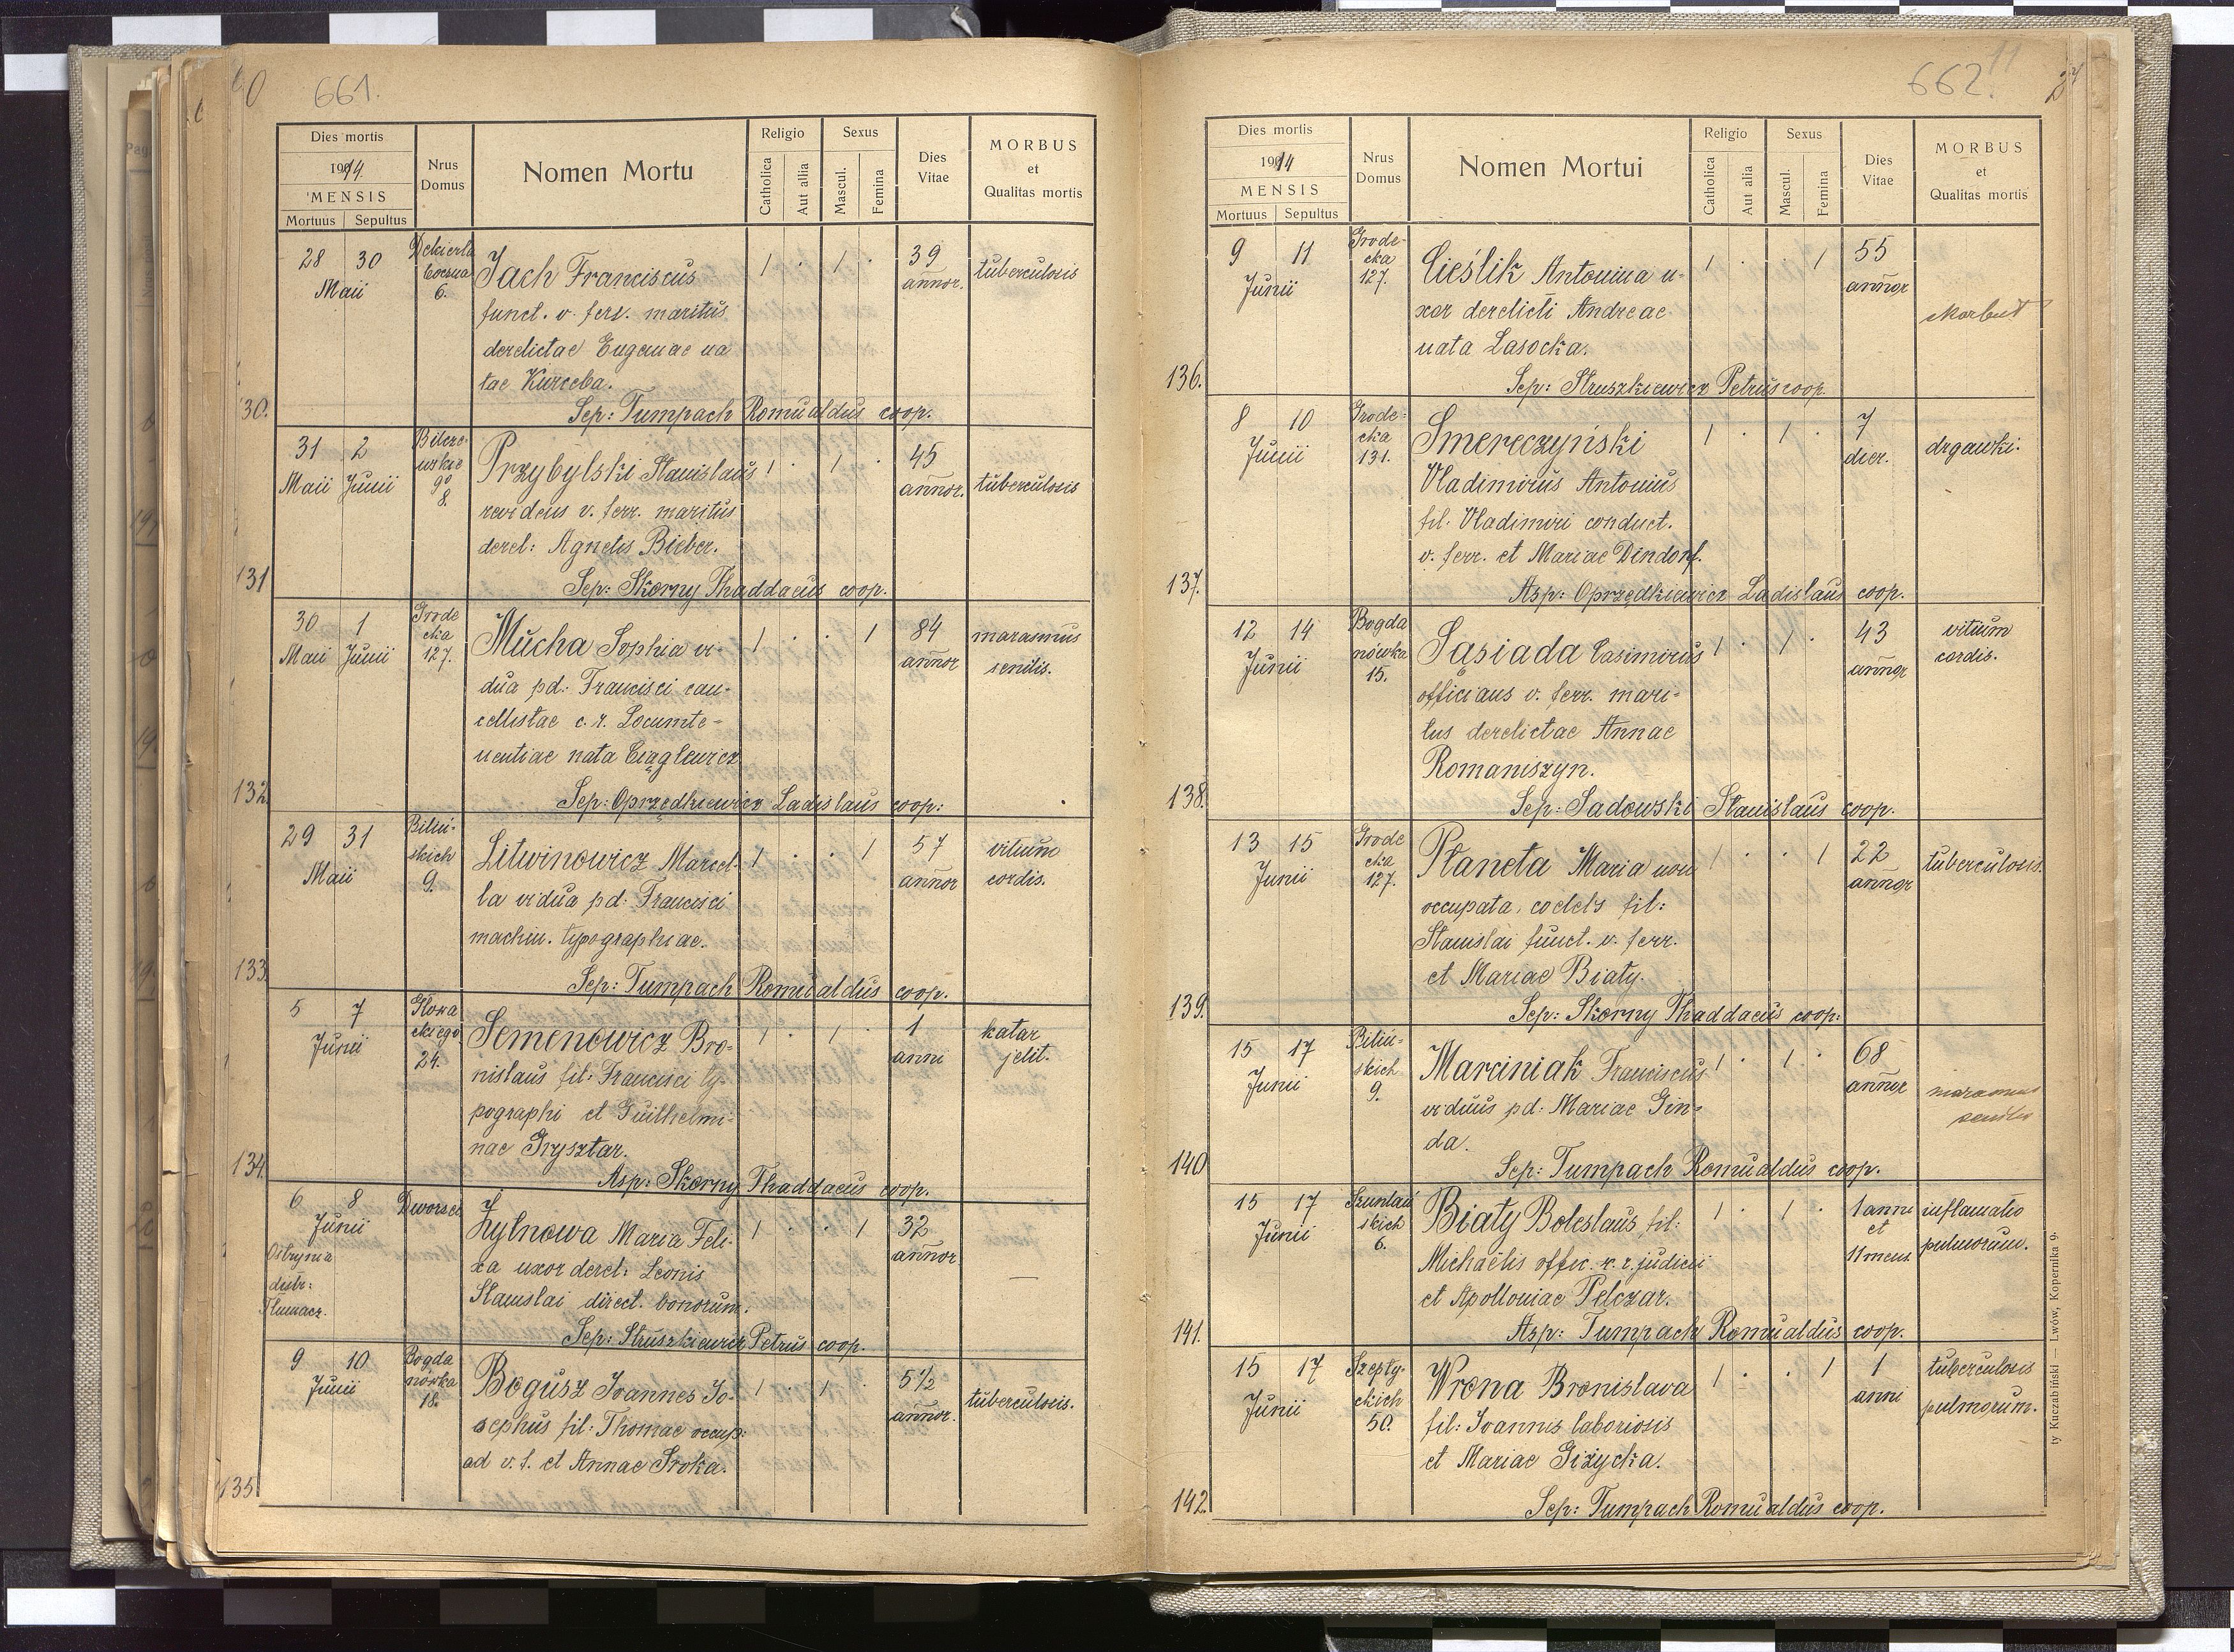 661.
Dies mortis
1914.
MENSIS
Mortuus Sepultus
Nrus Domus
Nomen Mortu
Religio
Catholica
Aut allia
Sexus
Mascul.
Femina
Dies Vitae
MORBUS
et
Qualitas mortis
28 30
Maii
6.
Jach Franciscus
funct. v. ferr. maritus
derelictae Eugeniae na
tae Kurceba.
1 . 1 .
39
annor.
tuberculosis
30.
Sep: Tumpach Romualdus coop.
31 2
Maii Junii
8.
Przybylski Stanislaus
revidens v. ferr. maritus
derel: Agnetis Bieber.
1 . 1 .
45
annor.
tuberculosis
131
Sep: Skorny Thaddaeus coop.
30 1
Maii Junii
Grode
cka
127.
Mucha Sophia vi-
dua pd: Francisci can-
cellistae c. r. Locumte-
nentiae nata Ciąglewicz
1 . . 1
84
annor
marasmus
senilis.
132.
Sep: Oprzędkiewicz Ladislaus coop:
29 31
Maii
Biliń-
skich
9.
Litwinowicz Marcel-
la vidua pd: Francisci
machin. typographiae.
1 . . 1
57
annor
vitium
cordis.
133.
Sep: Tumpach Romualdus coop.
5 7
Junii
Głowa
ckiego
24.
Semenowicz Bro-
nislaus fil: Francisci ty-
pographi et Guilhelmi-
nae Grysztar.
1 . 1 .
1
anni
katar
jelit.
134.
Asp: Skorny Thaddaeus coop.
6 8
Junii
Ostrynia
distr:
Tłumacz.
Dworzec
Żytnowa Maria Feli-
xa uxor derel: Leonis
Stanislai direct. bonorum.
1 . . 1
32
annor
—
Sep: Struszkiewicz Petrus coop.
9 10
Junii
Bogda
nówka
18.
Bogusz Joannes Jo-
sephus fil: Thomae occup:
ad v. f. et Annae Sroka.
1 . 1 .
5 1/2
annor.
tuberculosis.
135
662.
Dies mortis
1914
MENSIS
Mortuus Sepultus
Nrus Domus
Nomen Mortui
Religio
Catholica
Aut alia
Sexus
Mascul.
Femina
Dies Vitae
MORBUS
et
Qualitas mortis
9 11
Junii
Grode-
cka
127.
Cieślik Antonina u-
xor derelicti Andreae
nata Lasocka.
1 . . 1
55
annor
skorbut
136.
Sep: Struszkiewicz Petrus coop.
8 10
Junii
Grode-
cka
131.
Smereczyński
Vladimirus Antonius
fil: Vladimiri conduct.
v. ferr. et Mariae Dindorf.
1 . 1 .
7
dier.
drgawki.
137.
Asp: Oprzędkiewicz Ladislaus coop.
12 14
Junii
Bogda
nówka
15.
Sąsiada Casimirus
officians v. ferr. mari-
tus derelictae Annae
Romaniszyn.
1 . 1 .
43
annor
vitium
cordis.
138.
Sep: Sadowski Stanislaus coop.
13 15
Junii
Grode
cka
127.
Płaneta Maria non
occupata, coelebs fil:
Stanislai funct. v. ferr.
et Mariae Biały.
1 . . 1
22
annor
tuberculosis.
139.
Sep: Skorny Thaddaeus coop:
15 17
Junii
Biliń-
skich
9.
Marciniak Franciscus
viduus pd: Mariae Gin-
da.
1 . 1 .
68
annor
marasmus
senilis
140
Sep: Tumpach Romualdus coop.
15 17
Junii
Szumlań
skich
6.
Biały Boleslaus, fil:
Michaelis offic. c. r. judicii
et Apolloniae Pelczar.
1 . 1 .
1 anni
et
11 mens.
inflamatio
pulmorum.
141.
Asp: Tumpach Romualdus coop.
15 17
Junii
Szepty-
ckich
50.
Wrona Bronislava
fil: Joannis laboriosis
et Mariae Giżycka.
1 . . 1
1
anni
tuberculosis
pulmorum.
142.
Sep: Tumpach Romualdus coop.
ty Kuczabiński — Lwów, Kopernika 9.